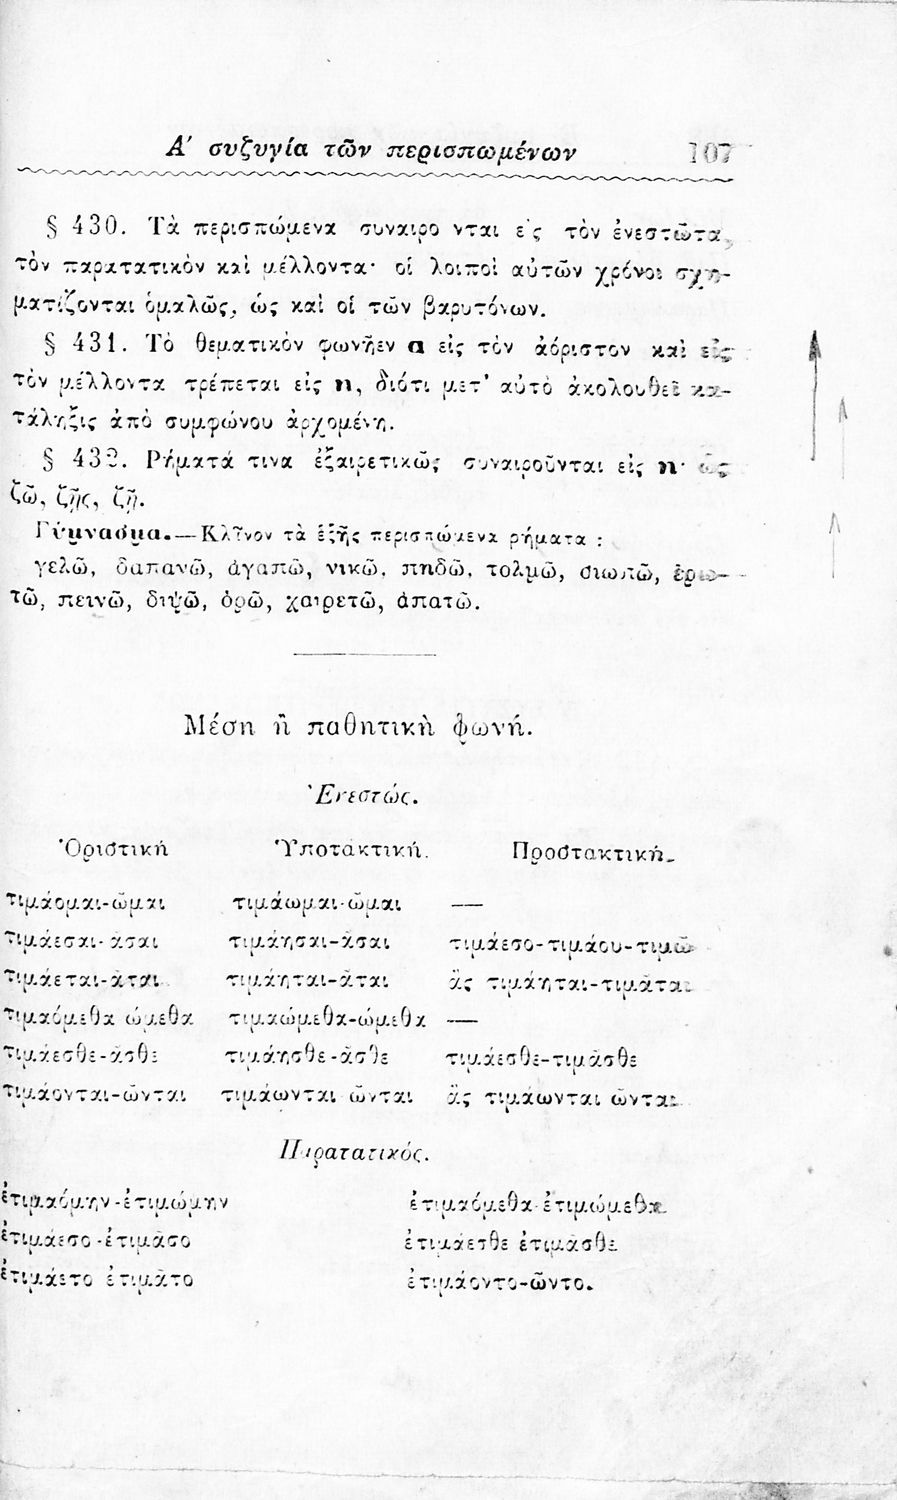 Α΄ συζυγία τῶν περισπωμένων 107
§ 430. Τὰ περισπώμενα συναιρο νται ε ς τὸν ἐνεστῶτα,
τὸν παρατατικὸν καὶ μέλλοντα· οἱ λοιποὶ αὐτῶν χρόνοι σχη-
ματίζονται ὁμαλῶς, ὡς καὶ οἱ τῶν βαρυτόνων.
§ 431. Τὸ θεματικὸν φωνῆεν α εἰς τὸν ἀόριστον καὶ εἰς
τὸν μέλλοντα τρέπεται εἰς η, διότι μετ᾽ αὐτὸ ἀκολουθεῖ κα-
τάληξις ἀπὸ συμφώνου ἀρχομένη.
§ 432. Ρήματά τινα ἐξαιρετικῶς συναιροῦνται εἰς η· ὡς
ζῶ, ζῇς, ζῇ.
Γύμνασμα.—Κλῖνον τὰ ἑξῆς περισπώμενα ρήματα :
γελῶ, δαπανῶ, ἀγαπῶ, νικῶ, πηδῶ, τολμῶ, σιωπῶ, ἐρω-
τῶ, πεινῶ, διψῶ, ὁρῶ, χαιρετῶ, ἀπατῶ.
Μέση ἢ παθητικὴ φωνή.
Ἐνεστώς.
Ὁριστική Ὑποτακτική. Προστακτική.
τιμάομαι-ῶμαι τιμάωμαι-ῶμαι —
τιμάεσαι-ᾶσαι τιμάησαι-ᾶσαι τιμάεσο-τιμάου-τιμῶ
τιμάεται-ᾶται τιμάηται-ᾶται ἂς τιμάηται-τιμᾶται
τιμαόμεθα ώμεθα τιμαώμεθα-ώμεθα —
τιμάεσθε-ᾶσθε τιμάησθε-ᾶσθε τιμάεσθε-τιμᾶσθε
τιμάονται-ῶνται τιμάωνται ῶνται ἂς τιμάωνται ῶνται
Παρατατικός.
ἐτιμαόμην-ἐτιμώμην ἐτιμαόμεθα-ἐτιμώμεθα
ἐτιμάεσο-ἐτιμᾶσο ἐτιμάεσθε ἐτιμᾶσθε
ἐτιμάετο ἐτιμᾶτο ἐτιμάοντο-ῶντο.